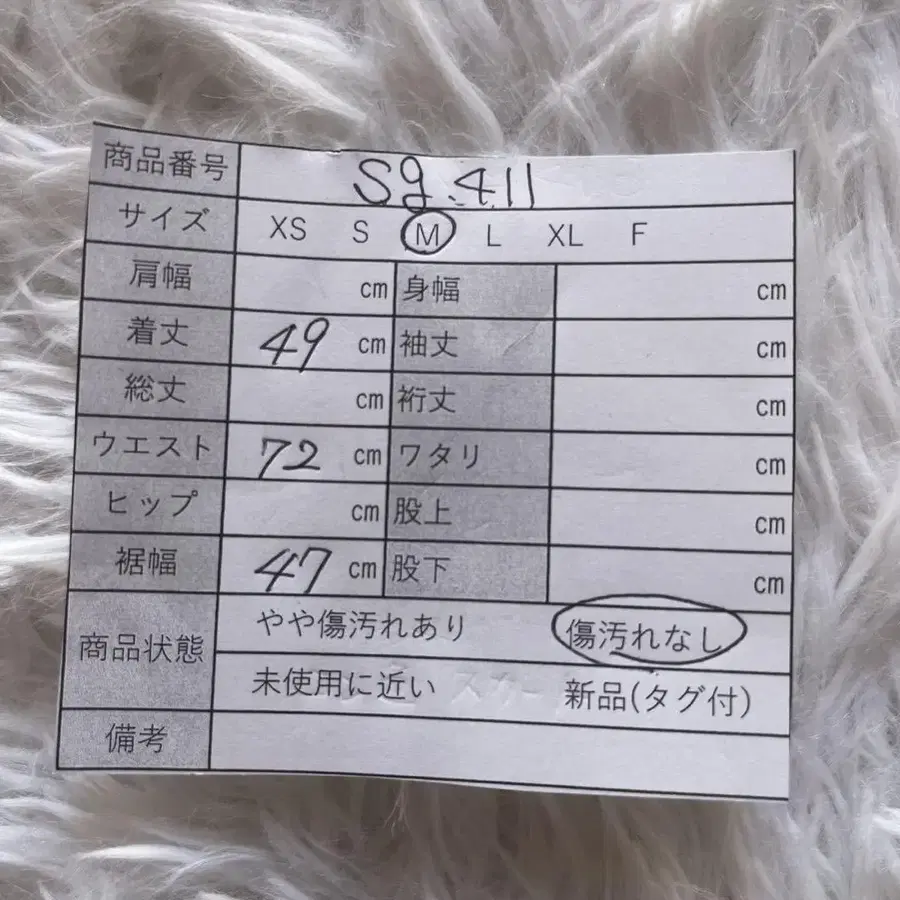 商品番号 Sg.411
サイズ XS S M L XL F
肩幅 cm 身幅 cm
着丈 49 cm 袖丈 cm
総丈 cm 裄丈 cm
ウエスト 72 cm ワタリ cm
ヒップ cm 股上 cm
裾幅 47 cm 股下 cm
商品状態 やや傷汚れあり 傷汚れなし
未使用に近い 新品(タグ付)
備考